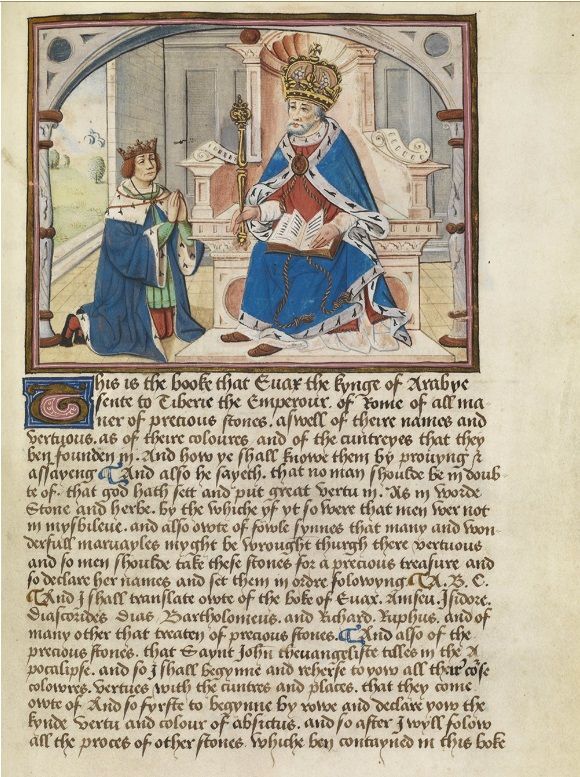 This is the booke that Evax the kynge of Arabye
sente to Tiberie the Emperour. of Rome of all ma
ner of precious stones. aswell of theire names and
vertuous. as of theire coloures and of the cuntreyes that they
ben founden in. And how ye shall knowe them by provyng &
assayeng And also he sayeth. that no man shoulde be in doub
te of. that god hath sett and put great vertu in. As in worde
Stone and herbe. by the whiche yf yt so were that men wer not
in mysbileve. and also owte of fowle synnes that many and won
derfull marvayles myght be wrought thurgh there vertuous
and so men shoulde take these stones for a precious treasure and
so declare her names and set them in ordre folowyng A. B. C.
And I shall translate owte of the boke of Evax. Isidore.
Diascorides Dias Bartholomeus. and Richard. Ruphus. and of
many other that treaten of precious stones. And also of the
precious stones. that Saynt John thevangeliste telles in the A
pocalipse. and so I shall begynne and reherse to yow all thar
colowres. vertues with the cuntres and places. that they come
owte of And so fyrste to begynne by rowe and declare yow the
kynde vertu and colour of absictus. and so after I wyll folow
all the proces of other stones whiche ben contayned in this boke